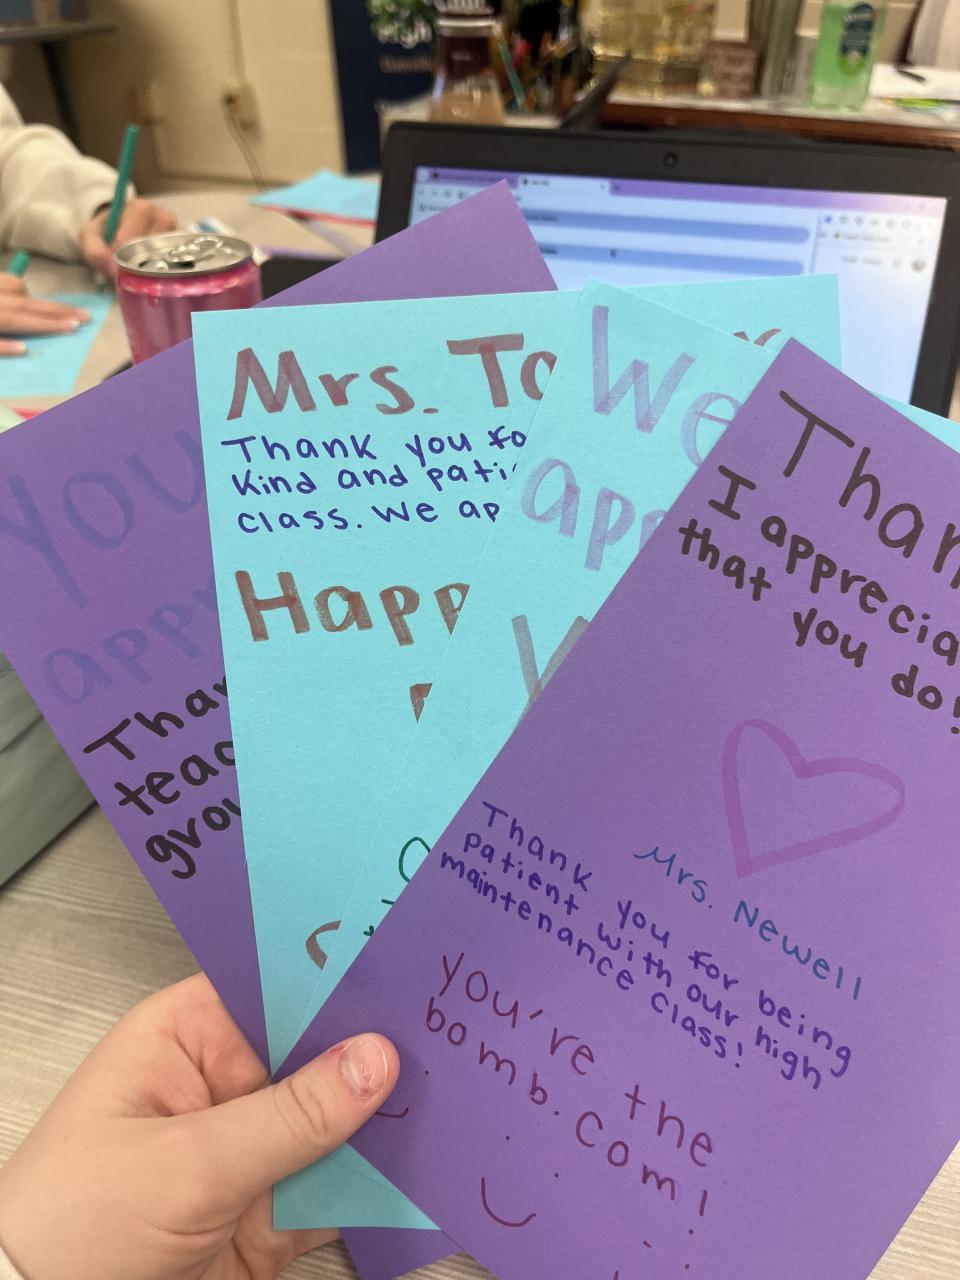 You
appr
Than
teac
grou
Mrs. To
Thank you fo
Kind and pati
class. We ap
Happ
We
app
Than
I apprecia
that you do!
Mrs. Newell
Thank you for being
patient with our high
maintenance class!
you're the
bomb.com!